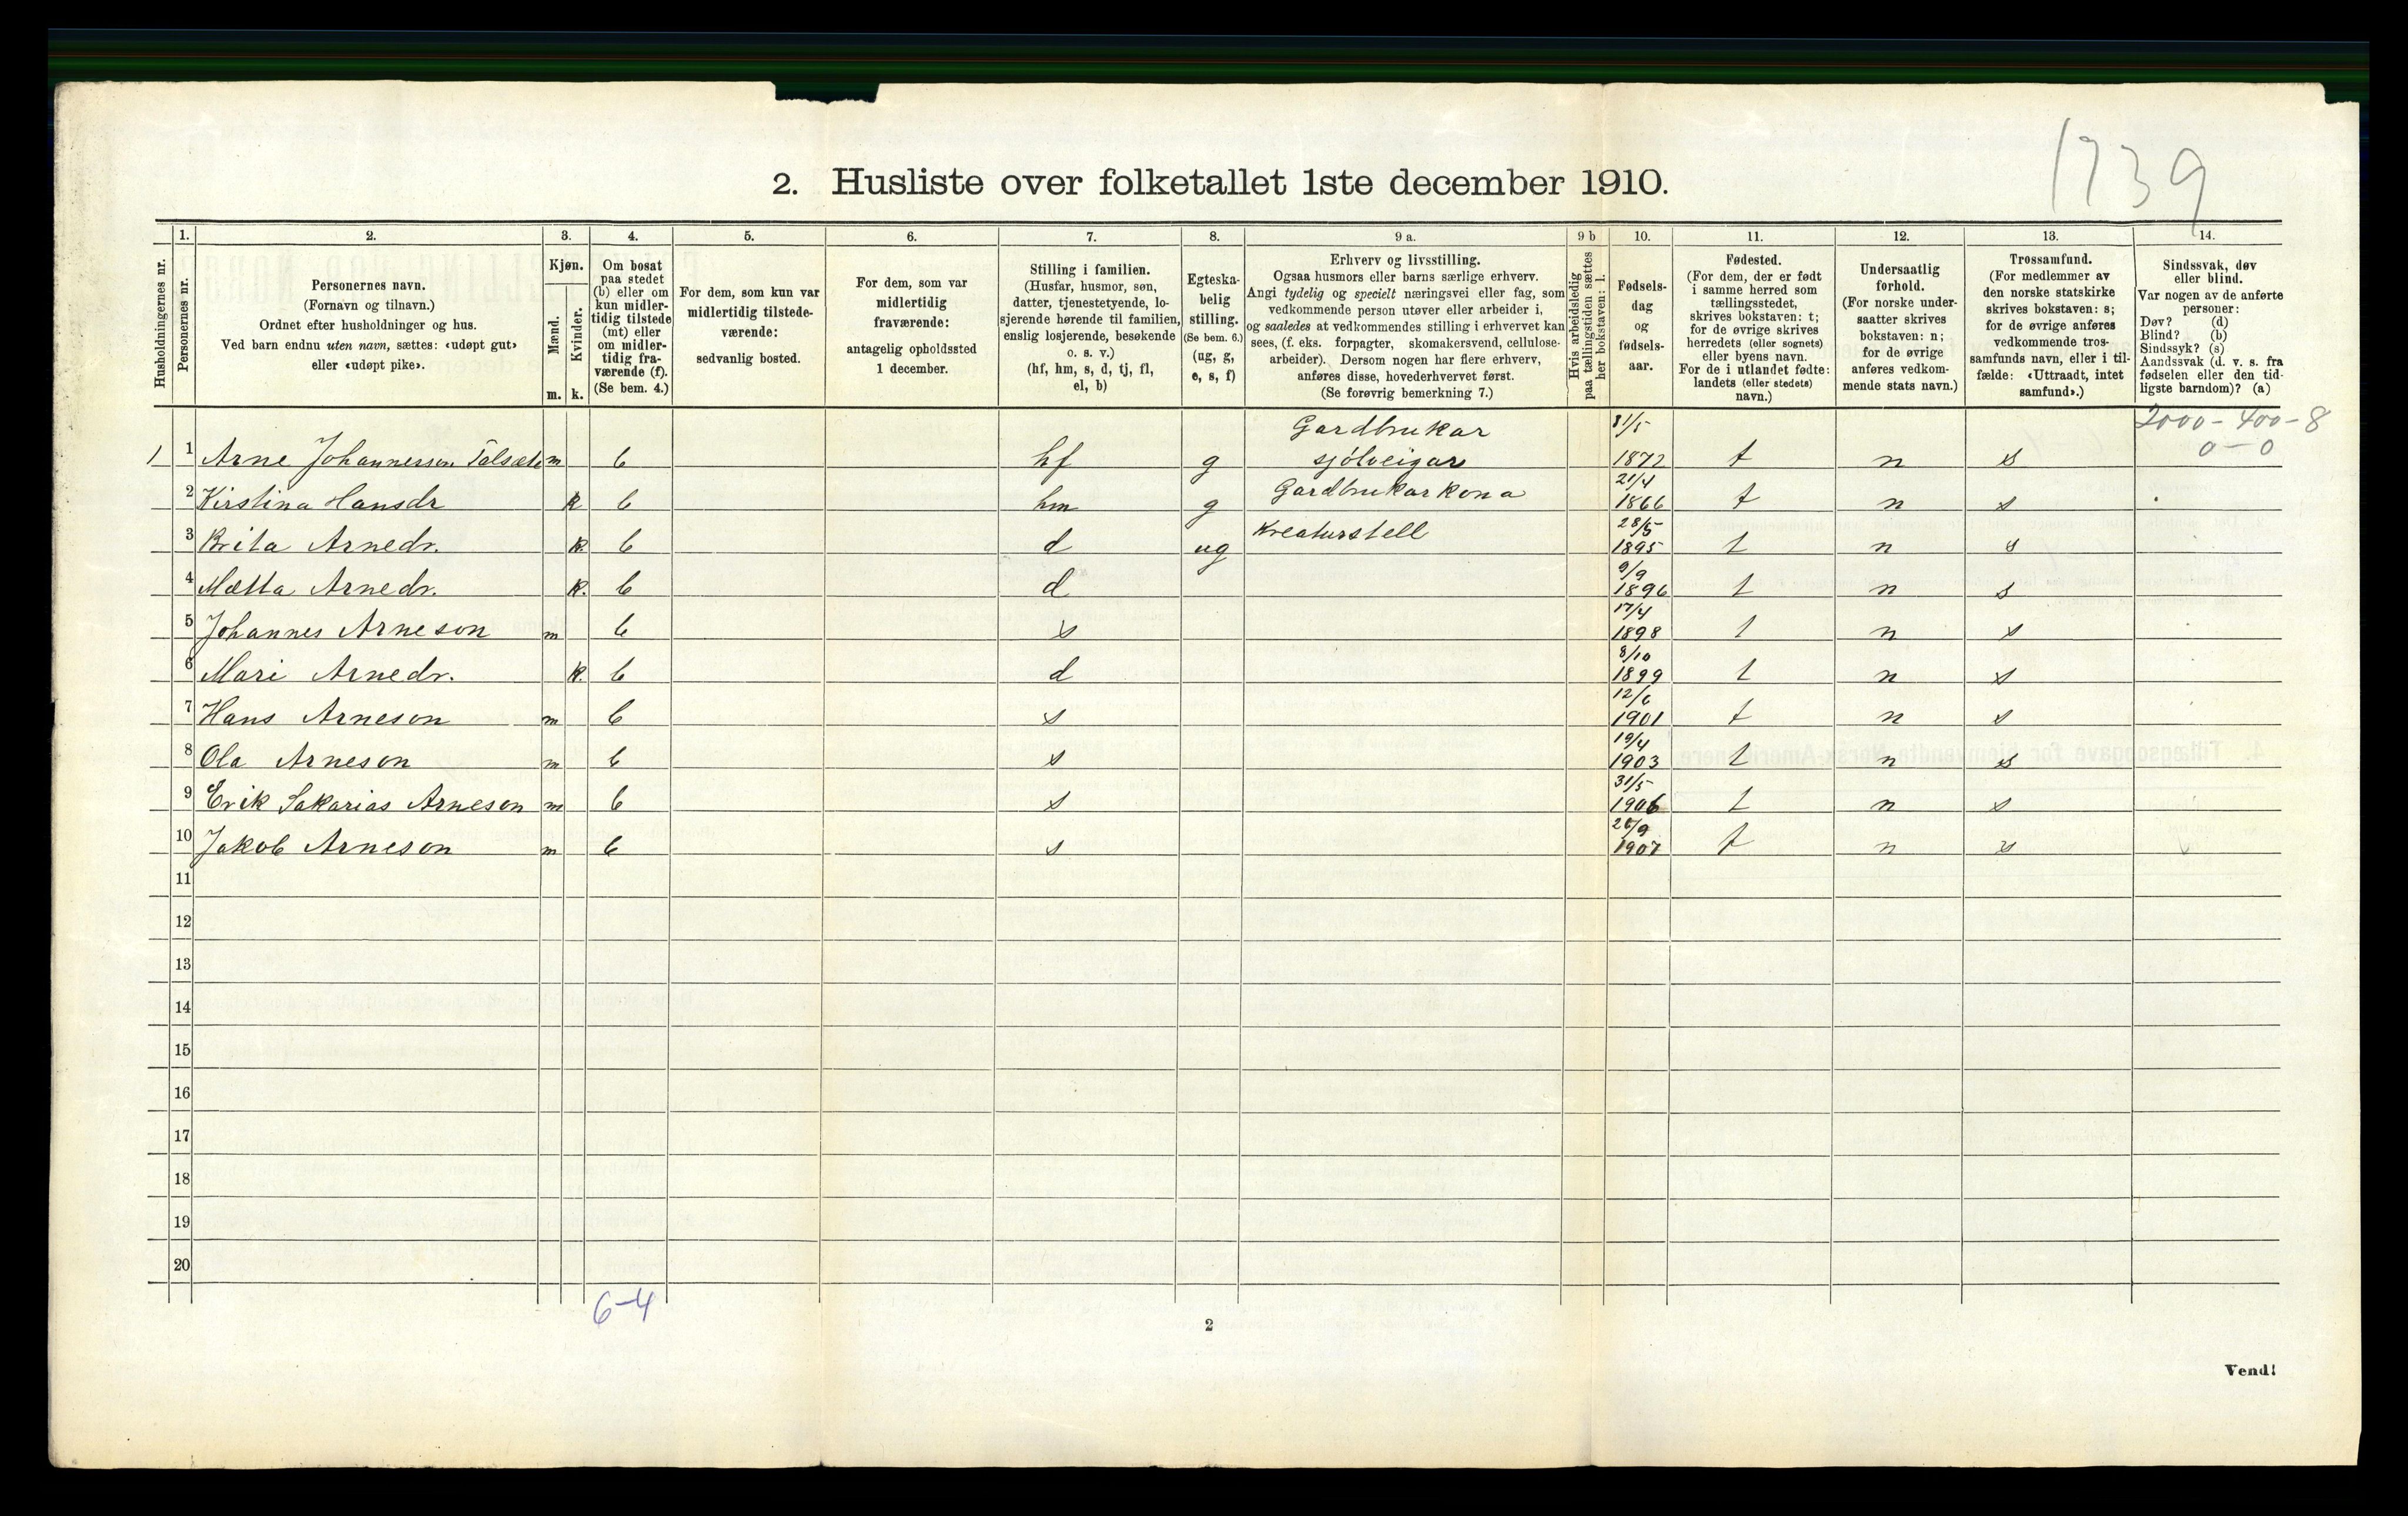 1739
2. Husliste over folketallet 1ste december 1910.
1. 2. 3. 4. 5. 6. 7. 8. 9 a. 9 b 10. 11. 12. 13. 14.
Husholdningernes nr.
Personernes nr.
Personernes navn.
(Fornavn og tilnavn.)
Ordnet efter husholdninger og hus.
Ved barn endnu uten navn, sættes: «udøpt gut»
eller «udøpt pike».
Kjøn.
Mænd.
Kvinder.
m. k.
Om bosat
paa stedet
(b) eller om
kun midler-
tidig tilstede
(mt) eller
om midler-
tidig fra-
værende (f).
(Se bem. 4.)
For dem, som kun var
midlertidig tilstede-
værende:
sedvanlig bosted.
For dem, som var
midlertidig
fraværende:
antagelig opholdssted
1 december.
Stilling i familien.
(Husfar, husmor, søn,
datter, tjenestetyende, lo-
sjerende hørende til familien,
enslig losjerende, besøkende
o. s. v.)
(hf, hm, s, d, tj, fl,
el, b)
Egteska-
belig
stilling.
(Se bem. 6.)
(ug, g,
e, s, f)
Erhverv og livsstilling.
Ogsaa husmors eller barns særlige erhverv.
Angi tydelig og specielt næringsvei eller fag, som
vedkommende person utøver eller arbeider i,
og saaledes at vedkommendes stilling i erhvervet kan
sees, (f. eks. forpagter, skomakersvend, cellulose-
arbeider). Dersom nogen har flere erhverv,
anføres disse, hovederhvervet først.
(Se forøvrig bemerkning 7.)
Hvis arbeidsledig
paa tællingstiden sættes
her bokstaven: l.
Fødsels-
dag
og
fødsels-
aar.
Fødested.
(For dem, der er født
i samme herred som
tællingsstedet,
skrives bokstaven: t;
for de øvrige skrives
herredets (eller sognets)
eller byens navn.
For de i utlandet fødte:
landets (eller stedets)
navn.)
Undersaatlig
forhold.
(For norske under-
saatter skrives
bokstaven: n;
for de øvrige
anføres vedkom-
mende stats navn.)
Trossamfund.
(For medlemmer av
den norske statskirke
skrives bokstaven: s;
for de øvrige anføres
vedkommende tros-
samfunds navn, eller i til-
fælde: «Uttraadt, intet
samfund».)
Sindssvak, døv
eller blind.
Var nogen av de anførte
personer:
Døv? (d)
Blind? (b)
Sindssyk? (s)
Aandssvak (d. v. s. fra
fødselen eller den tid-
ligste barndom)? (a)
2000-400-8
0-0
1 1 Arne Johannesson m b hf g Gardbrukar sjölveigar 31/5 1872 t n s
2 Kirstina Hansdr k b hm g Gardbrukarkona 21/4 1866 t n s
3 Brita Arnedr. k. b d ug Kreaturstell 28/5 1895 t n s
4 Mætta Arnedr. k. b d 9/9 1896 t n s
5 Johannes Arneson m b s 17/4 1898 t n s
6 Mari Arnedr. k. b d 8/10 1899 t n s
7 Hans Arneson m b s 12/6 1901 t n s
8 Ola Arneson m b s 19/4 1903 t n s
9 Erik Sakarias Arneson m b s 31/5 1906 t n s
10 Jakob Arneson m b s 1907 t n s
11
12
13
14
15
16
17
18
19
20
6-4
2
Vend!